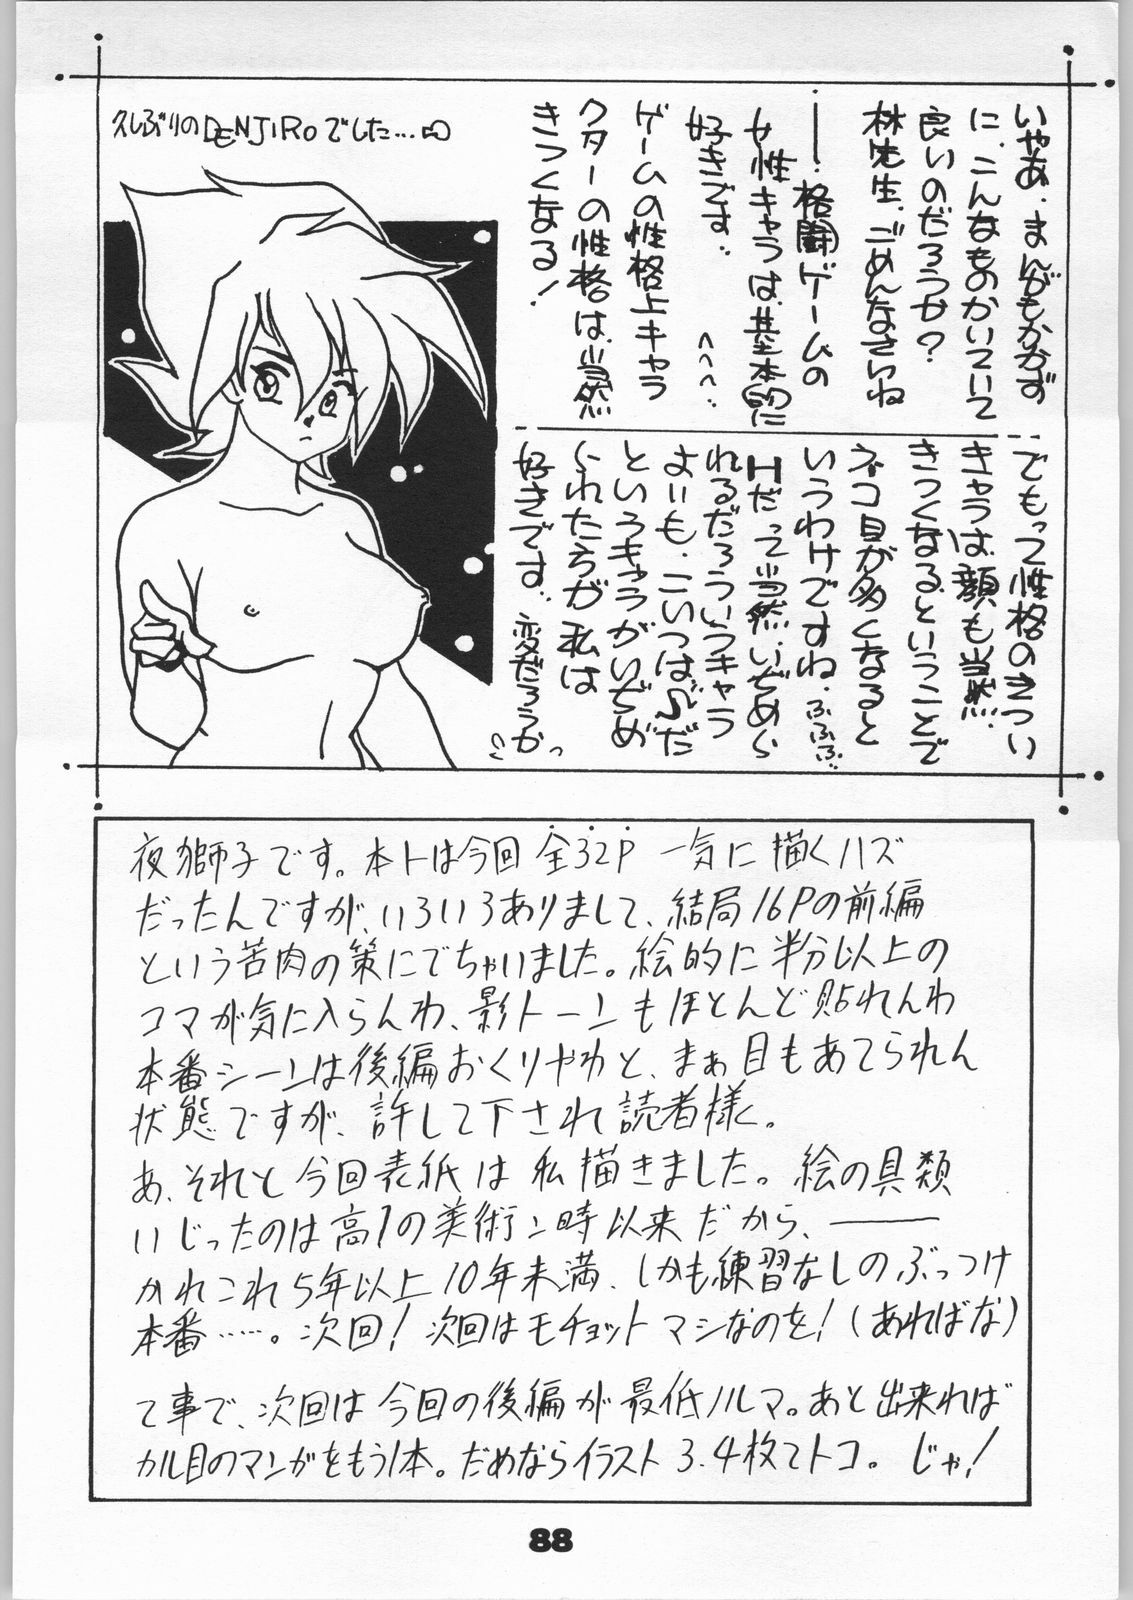 久しぶりのDENJIROでした…
いやあ、まんがもかかず
に、こんなものかいていて
良いのだろうか?
林先生、ごめんなさいね
―!格闘ゲームの
女性キャラは、基本的に
好きです。
へへへ
ゲームの性格上キャラ
クターの性格は、当然
きつくなる!
でもって性格のきつい
キャラは、顔も当然、
きつくなるということで
ネコ目が多くなると
いうわけですね、ふふふ
Hだって当然、いぢめら
れるだろういうキャラ
よいも、こいつは♪だ
といろキャラがいぢめ
られた方が私は
好きです。変だろうか
夜獅子です。本トは今回 全32P 一気に描くハズ
だったんですが、いろいろありまして、結局16Pの前編
という苦肉の策にでちゃいました。絵的に半分以上の
コマが気に入らんわ、影トーンもほとんど貼れんわ
本番シーンは後編おくりやわと、まぁ目もあてられん
状態ですが、許して下され読者様。
あ、それと今回表紙は私描きました。絵の具類
いじったのは高1の美術ン時以来だから、――
かれこれ5年以上10年未満、しかも練習なしのぶっつけ
本番……。次回!次回はモチョットマシなのを!(あればな)
て事で、次回は今回の後編が最低ノルマ。あと出来れば
カル目のマンガをもう1本。だめならイラスト3、4枚てトコ。じゃ!
88